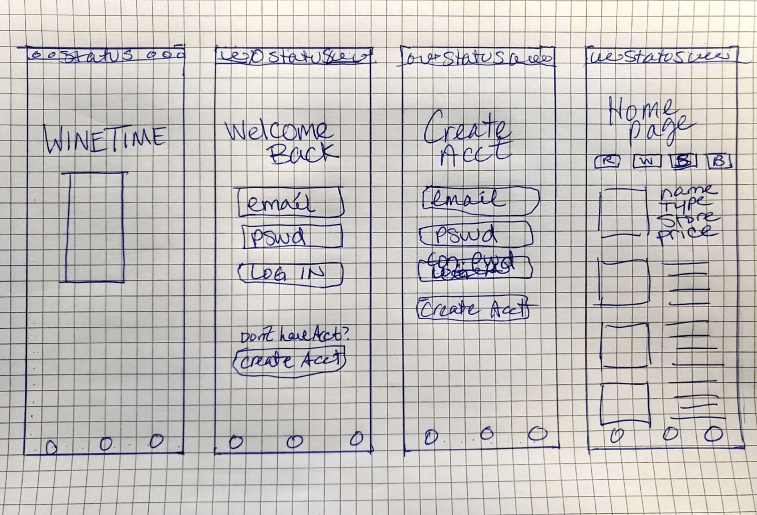 Status
WINETIME
Status
Welcome
Back
email
pswd
LOG IN
Don't have Acct?
Create Acct
Status
Create
Acct
email
pswd
con pwd
Create Acct
Status
Home
page
R W B B
name
type
store
price